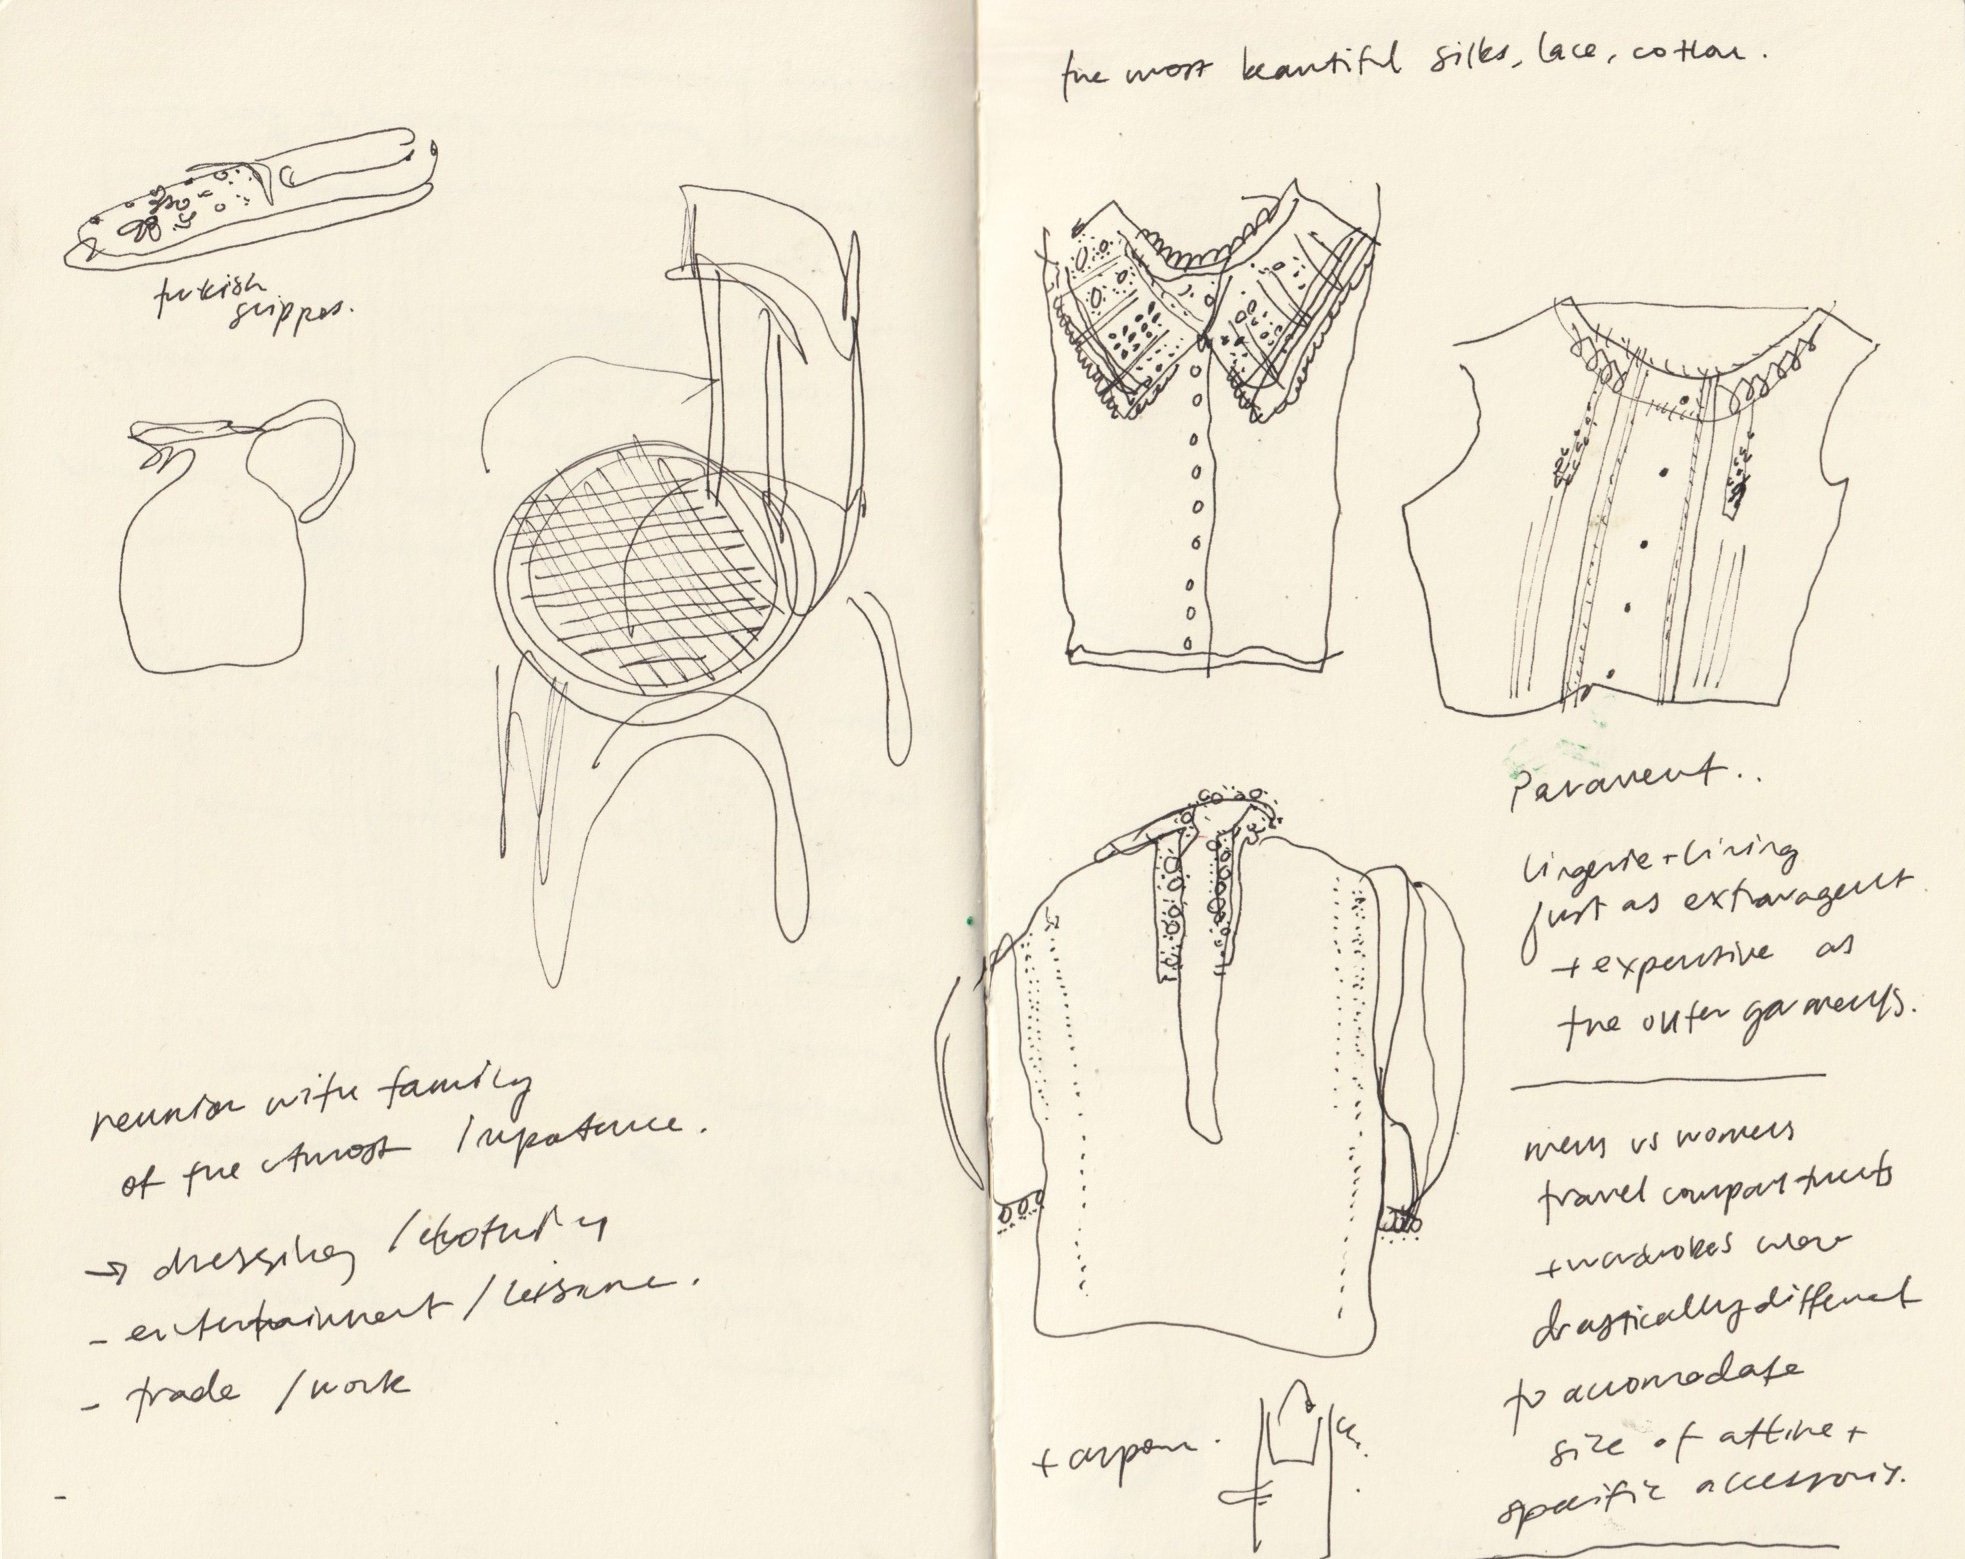 turkish
slippers.
reunion with family
of the utmost importance.
→ dressing / clothing
- entertainment / leisure.
- trade / work
-
the most beautiful silks, lace, cotton.
Paravent..
lingerie + lining
just as extravagent
+ expensive as
the outer garments.
mens vs womens
travel compartments
+ wardrobes were
drastically different
to accomodate
size of attire +
specific accessories.
+